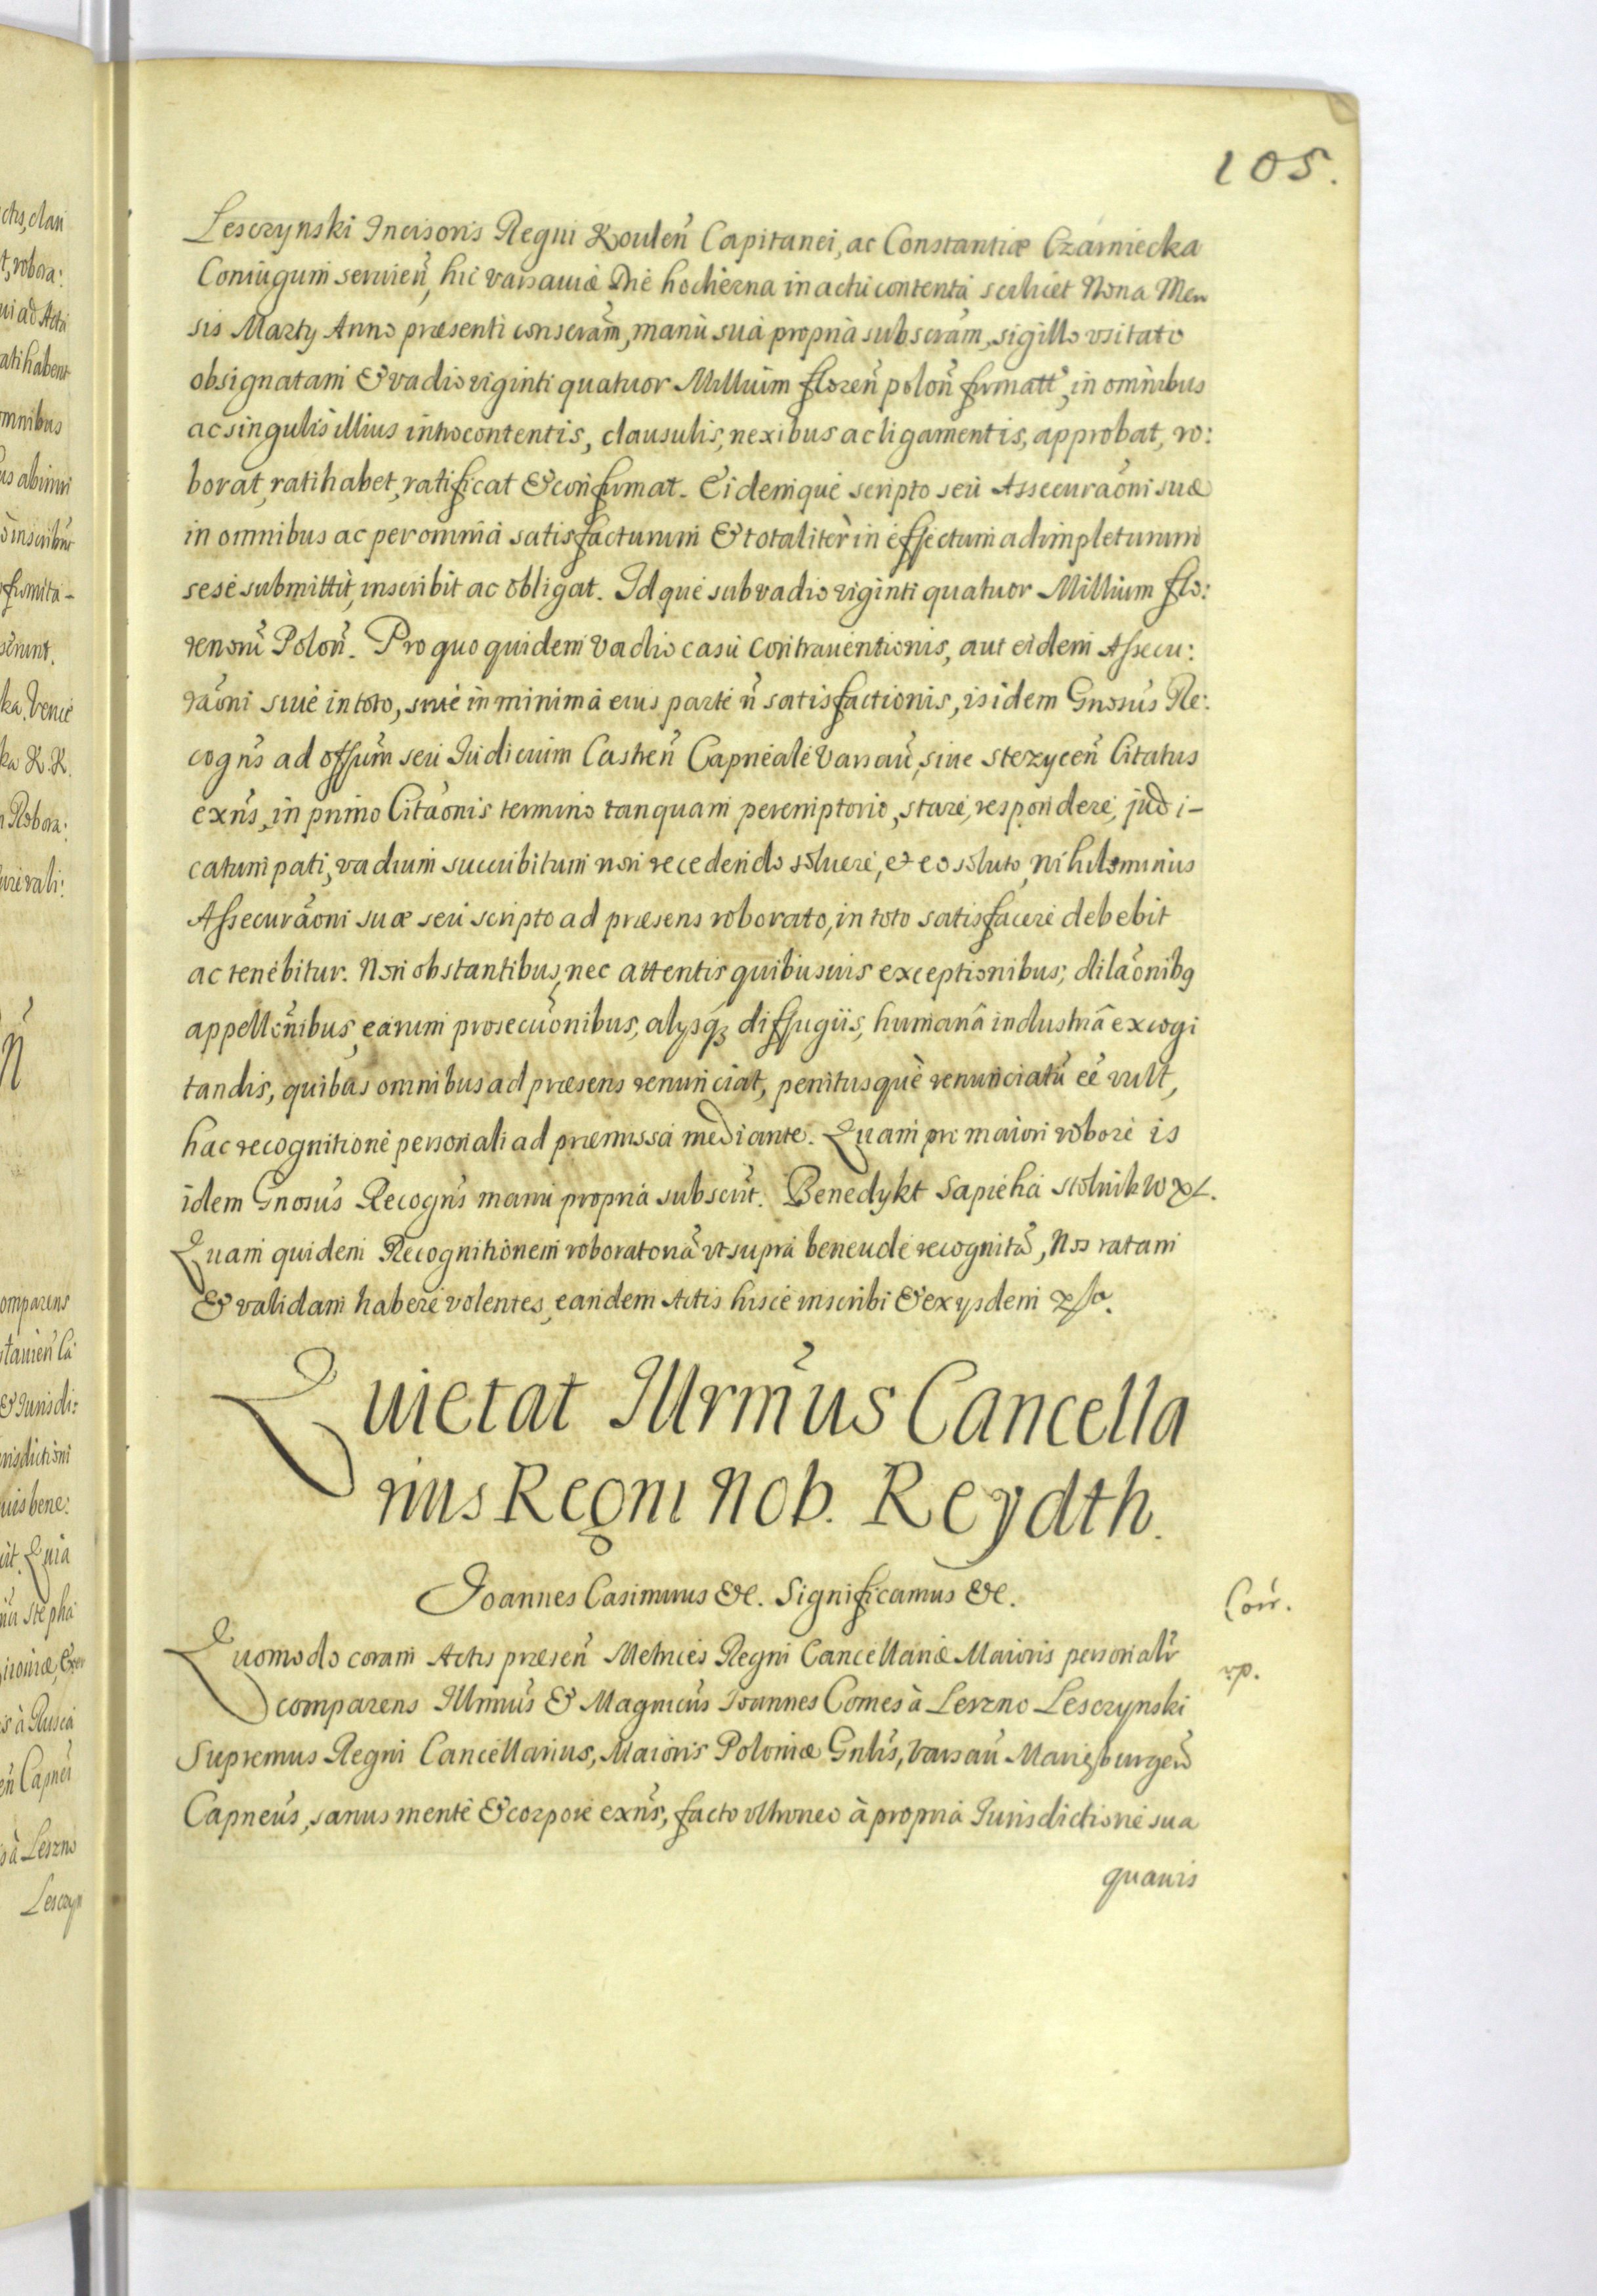 105.
Lesczynski Incisoris Regni Koulen̄ Capitanei, ac Constantiæ Czarniecka
Coniugum seruien̄, hic varsauiæ Die hodierna in actu contenta scilicet Nona Men
sis Marty Anno præsenti conscrām, manu sua propria subscrām, sigillo vsitato
obsignatam & vadio viginti quatuor Millium floren̄ polon̄ firmatt̄, in omnibus
ac singulis illius introcontentis, clausulis, nexibus ac ligamentis, approbat, ro:
borat, ratihabet, ratificat & confirmat. Eidemque scripto seu Assecurāoni suæ
in omnibus ac per omnia satisfacturum & totaliter in effectum adimpleturum
sese submittit, inscribit ac obligat. Idque sub vadio viginti quatuor Millium flo:
renorū Polon̄. Pro quo quidem vadio casu contrauentionis, aut eidem Assecu:
rāoni siue in toto, siue in minima eius parte n̄ satisfactionis, is idem Gnosūs Re:
cogn̄s ad offūm seu Iudicium Castren̄ Capnēale Varsau̅, siue stezycen̄ Citatus
exn̄s, in primo Citāonis termino tanquam peremptorio, stare, respondere, judi-
catum pati, vadium succubitum non recedendo soluere, et eo soluto, nihilominus
Assecurāoni suæ seu scripto ad præsens roborato, in toto satisfacere debebit
ac tenebitur. Non obstantibus, nec attentis quibusuis exceptionibus, dilāonibq
appellōnibus, earum prosecūonibus, alysq̨ diffugiis, humanâ industriâ excogi
tandis, quibus omnibus ad præsens renunciat, penitusquè renunciatū eē vult,
hac recognitione personali ad præmissa mediante. Quam pri maiori robore is
idem Gnosūs Recogn̄s manu propria subscr̄t. Benedykt Sapieha stolnik W X L.
Quam quidem Recognitionem roboratoriā vt supra beneuole recognitā, Nos ratam
& validam habere volentes, eandem Actis hisce inscribi & ex ysdem
Quietat Illrm̄us Cancella
rius Regni Nob. Reydth.
Joannes Casimirus &c. Significamus &c.
Corr.
Quomodo coram Actis præsen̄ Metrices Regni Cancellariæ Maioris personalr̄
rp.
comparens Illrmūs & Magnicūs Joannes Comes à Leszno Lesczynski
Supremus Regni Cancellarius, Maioris Poloniæ Gnl̄is, Varsau̅ Mariæburgen̄
Capneūs, sanus mente & corpore exn̄s, facto vltroneo à propria Jurisdictione sua
quauis